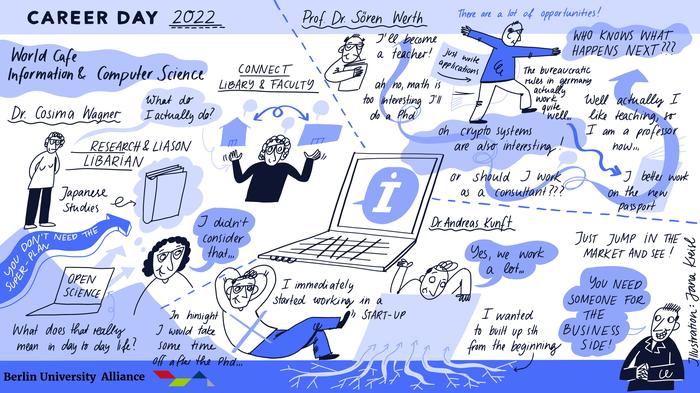 CAREER DAY 2022
World Cafe
Information & Computer Science
Dr. Cosima Wagner
What do
I actually do?
RESEARCH & LIASON
LIBRARIAN
Japanese
Studies
CONNECT
LIBARY & FACULTY
YOU DON'T NEED THE
SUPER-PLAN
OPEN
SCIENCE
What does that really
mean in day to day life?
I didn't
consider
that...
Prof. Dr. Sören Werth
I'll become
a teacher!
ah no, math is
too interesting I'll
do a Phd
just write
applications
There are a lot of opportunities!
The bureaucratic
rules in germany
actually
work
quite
well...
oh crypto systems
are also interesting!
or should I work
as a consultant???
WHO KNOWS WHAT
HAPPENS NEXT???
Well actually I
like teaching, so
I am a professor
now...
I better work
on the new
passport
i
Dr. Andreas Kunft
Yes, we work
a lot...
I immediately
started working in a
START-UP
In hinsight
I would take
some time
off after the Phd...
I wanted
to built up sth
from the beginning
JUST JUMP IN THE
MARKET AND SEE!
YOU NEED
SOMEONE FOR
THE
BUSINESS
SIDE!
Berlin University Alliance